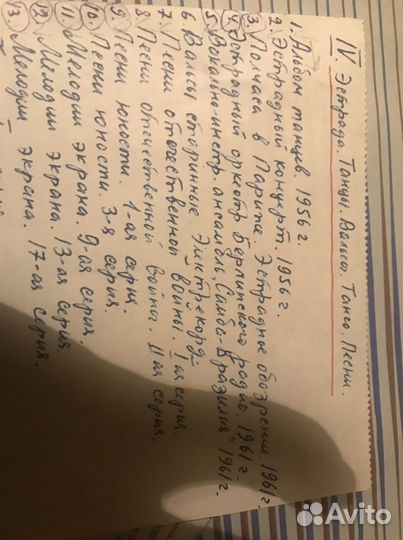 IV. Эстрада. Танцы. Вальсы. Танго. Песни.
1. Альбом танцев 1956 г.
2. Эстрадный концерт. 1956 г.
3. Полчаса в Париже. Эстрадное обозрение. 1961 г.
4. Эстрадный оркестр Берлинского радио. 1961 г.
5. Вокально-инстр. ансамбль „Самба-Бразилия" 1961 г.
6. Вальсы старинные. Электрекорд
7. Песни отечественной войны. I ая серия.
8 Песни отечественной война. II ая серия.
9. Песни юности. 1-ая серия.
10. Песни юности. 3-я серия.
11. Мелодии экрана. 9-ая серия.
12. Мелодии экрана. 13-ая серия.
13. Мелодии экрана. 17-ая серия.
Avito